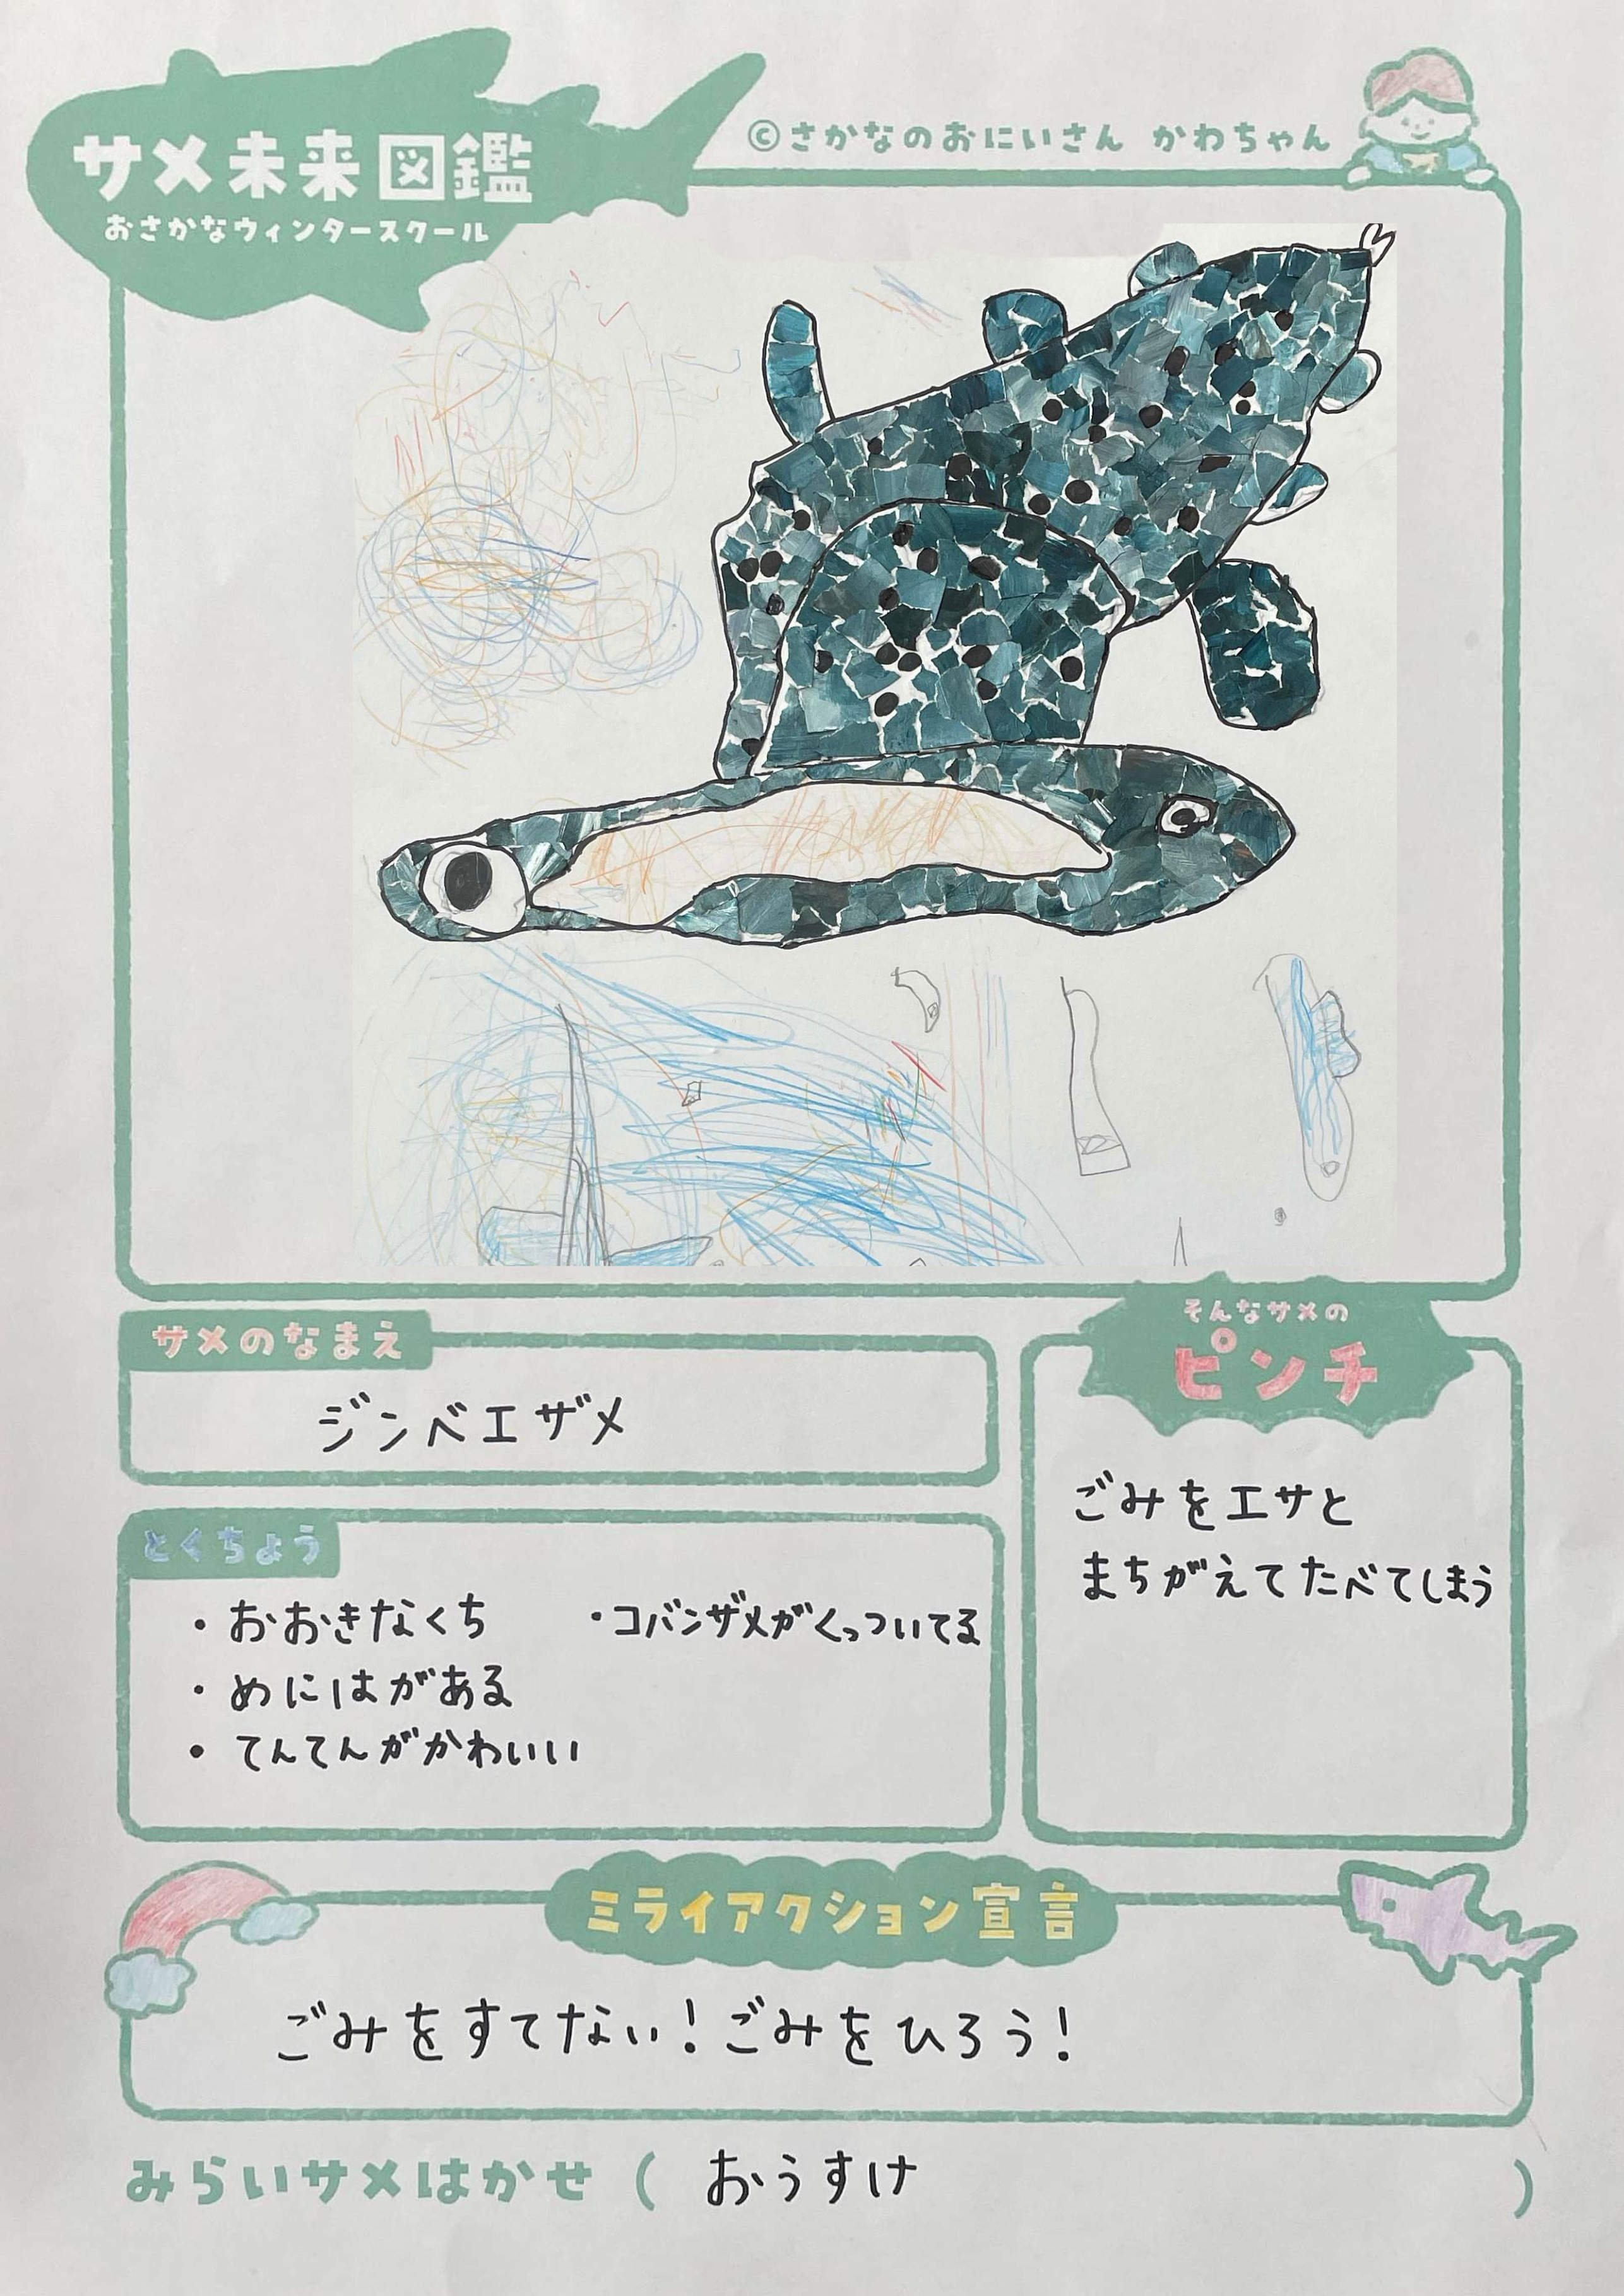 サメ未来図鑑
おさかなウィンタースクール
©さかなのおにいさん かわちゃん
サメのなまえ
ジンベエザメ
そんなサメの
ピンチ
ごみをエサと
まちがえてたべてしまう
とくちょう
・おおきなくち ・コバンザメがくっついてる
・めにはがある
・てんてんがかわいい
ミライアクション宣言
ごみをすてない!ごみをひろう!
みらいサメはかせ ( おうすけ )